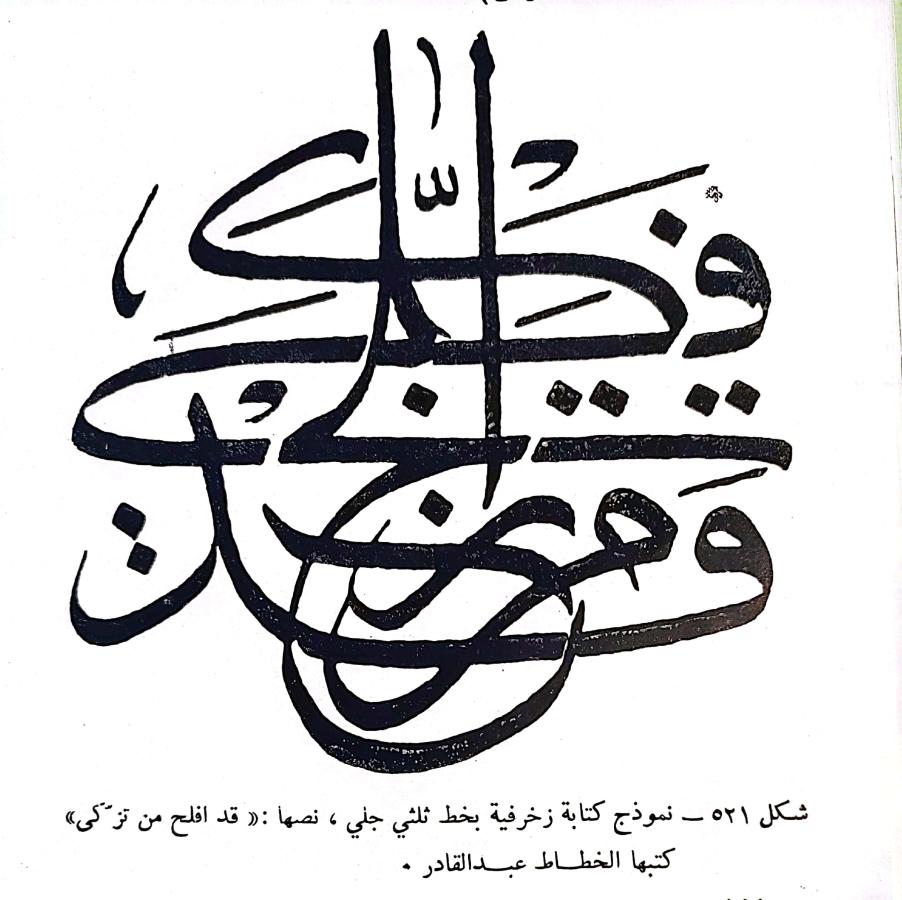 قد أفلح من تزكى
شكل ٥٢١ — نموذج كتابة زخرفية بخط ثلثي جلي ، نصها :« قد افلح من تزّكى»
كتبها الخطاط عبدالقادر .